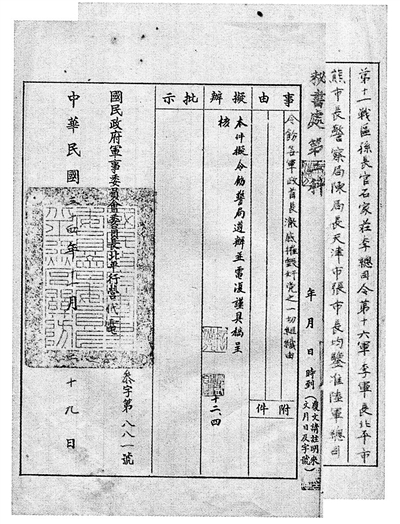 第十一戰區孫長官石家莊李總司令第十六軍李軍長北平市
熊市長警察局陳局長天津市張市長均鑒准陸軍總司
秘書處第
年 月 日 時到
復文請註明來
文月日及字號
事由
令飭各軍政首長澈底摧毀奸黨之一切組織由
附件
擬辦
本件擬令飭警局遵辦並電復謹具稿呈
核
十二、四
批示
國民政府軍事委員會委員長北平行營代電
叅字第八八一號
中華民國三十四年十一月二十九日